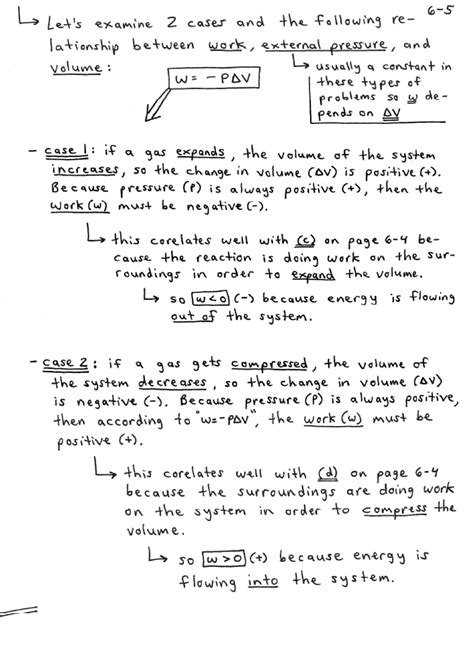 6-5
↳ Let's examine 2 cases and the following re-
lationship between work, external pressure, and
volume:
w = -PΔV
↳ usually a constant in
these types of
problems so w de-
pends on ΔV
- case 1: if a gas expands, the volume of the system
increases, so the change in volume (ΔV) is positive (+).
Because pressure (P) is always positive (+), then the
work (w) must be negative (-).
↳ this corelates well with (c) on page 6-4 be-
cause the reaction is doing work on the sur-
roundings in order to expand the volume.
↳ so w<0 (-) because energy is flowing
out of the system.
- case 2: if a gas gets compressed, the volume of
the system decreases, so the change in volume (ΔV)
is negative (-). Because pressure (P) is always positive,
then according to "w=-PΔV", the work (w) must be
positive (+).
↳ this corelates well with (d) on page 6-4
because the surroundings are doing work
on the system in order to compress the
volume.
↳ so w>0 (+) because energy is
flowing into the system.